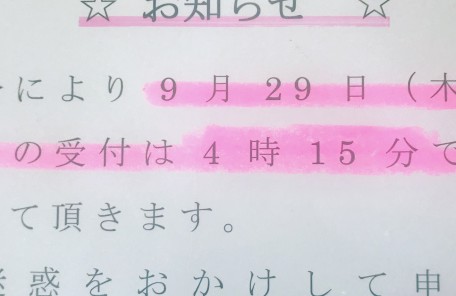 ☆ お知らせ ☆
により 9 月 29 日 （木
の受付は 4 時 15 分で
て頂きます。
惑をおかけして申